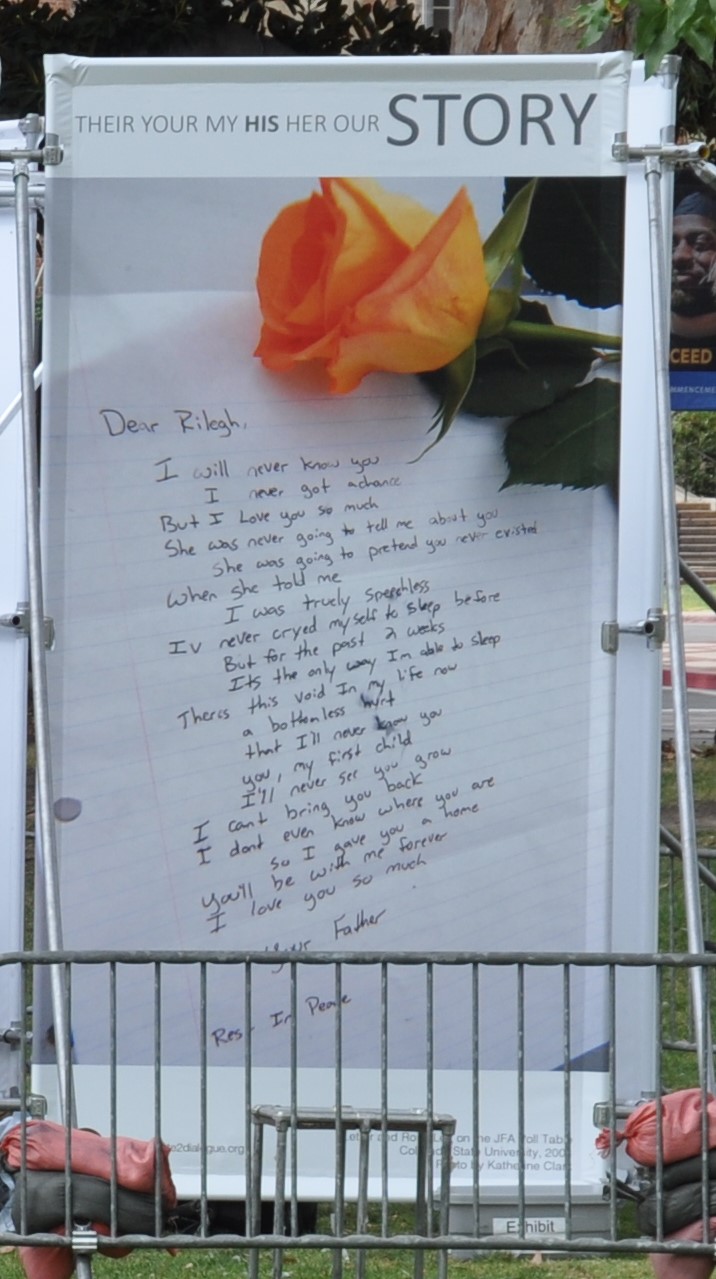 THEIR YOUR MY HIS HER OUR STORY
Dear Rilegh,
I will never know you
I never got a chance
But I Love you so much
She was never going to tell me about you
She was going to pretend you never existed
When she told me
I was truely speechless
Iv never cryed myself to sleep before
But for the past 2 weeks
Its the only way Im able to sleep
Theres this void In my life now
a bottomless hurt
that I'll never know you
you, my first child
I'll never see you grow
I cant bring you back
I dont even know where you are
so I gave you a home
you'll be with me forever
I love you so much
Your Father
Rest In Peace
CEED
MMENCEME
e2dialogue.org
Letter and Rose Left on the JFA Poll Tab
Colorado State University, 200
Photo by Katherine Cla
Exhibit